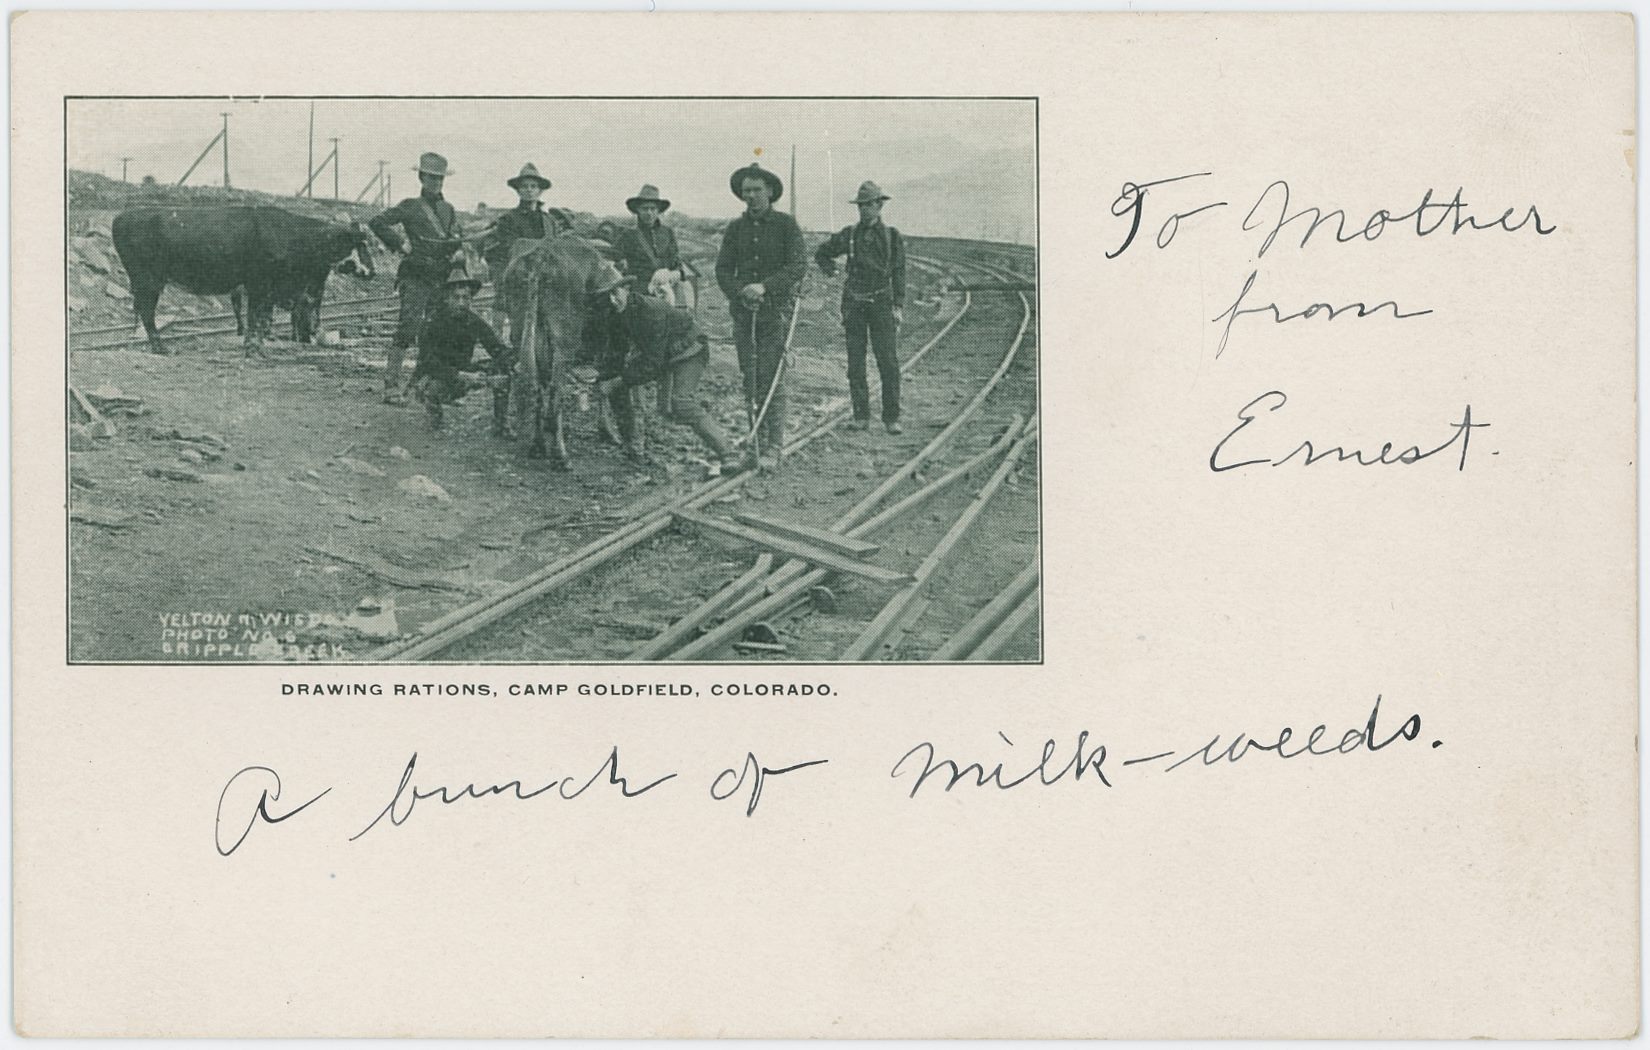 To Mother
from
Ernest.
YELTON & WISDOM
PHOTO NO. 6
CRIPPLE CREEK
DRAWING RATIONS, CAMP GOLDFIELD, COLORADO.
A bunch of milk-weeds.